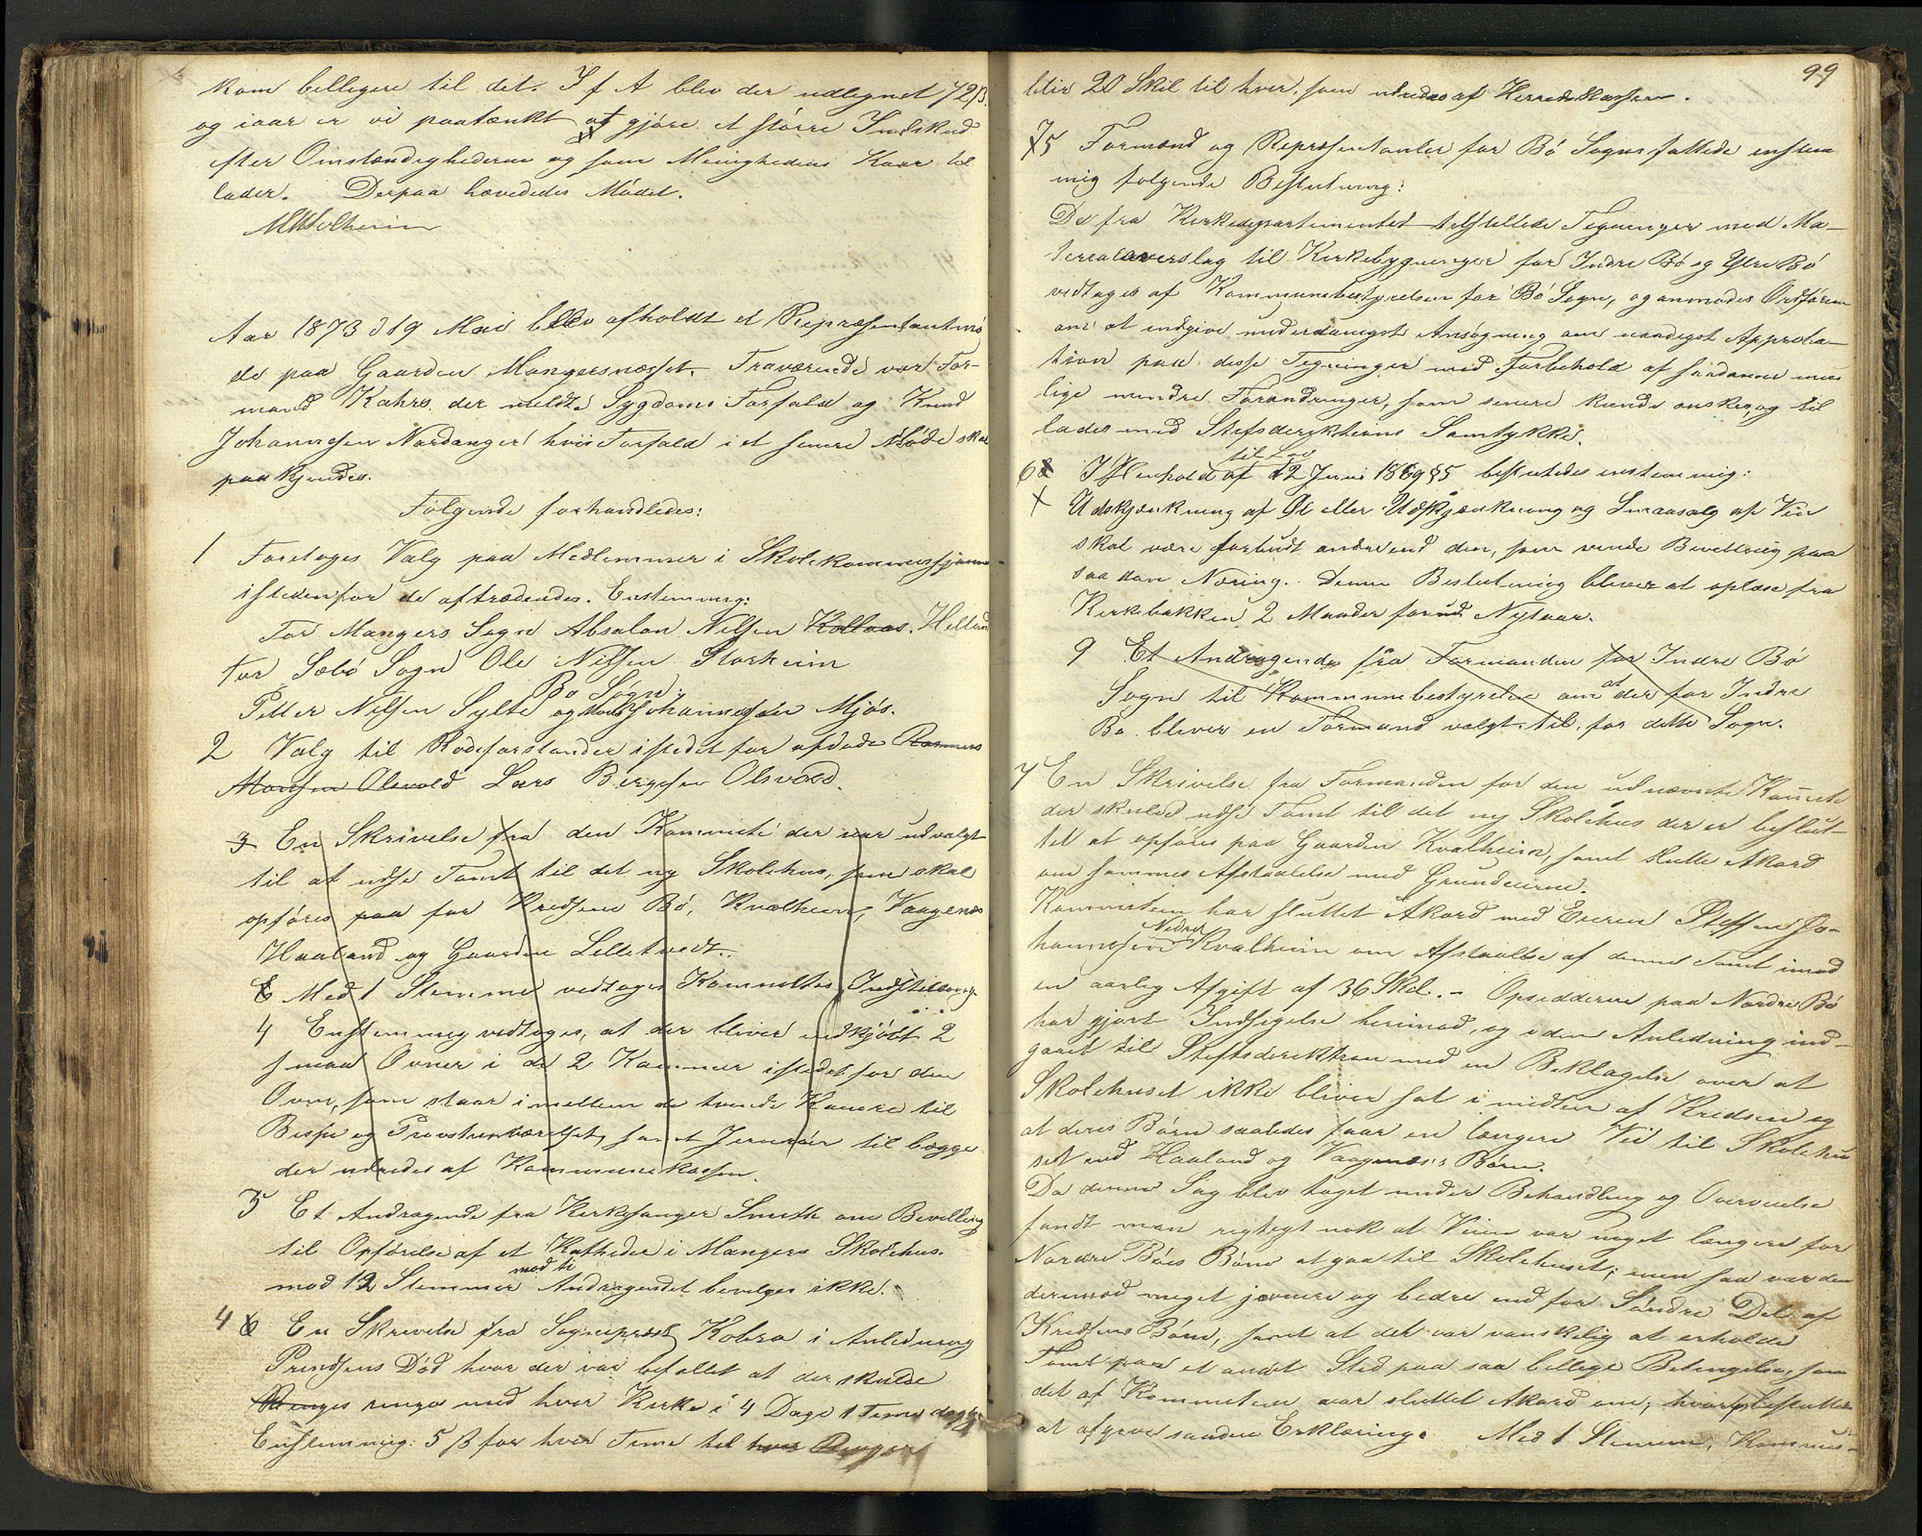 kom billigere til det. I f A blev der udlignet 72 ß
og iaar er vi paatænkt at gjøre et større Indskud
efter Omstændighederne og som Menighedens Kaar til
lader. Derpaa hævededes Mødet.
Aar 1873 d 19 Mai blev afholdt et Repræsentantmø
de paa Gaarden Mangersnæsset. Fraværende var For-
mand Kahrs der meldte Sygdoms Forfald og Knud
Johannesen Nordanger hvis Forfald i et senere Møde skal
paakjendes.
Følgende forhandledes:
1 Foretoges Valg paa Medlemmer i Skolekommissjonen
istedenfor de aftrædende. Enstemmig:
For Mangers Sogn Absalon Nilsen Kollaas. Helland
For Sæbø Sogn Ole Nilsen Storheim
Bø Sogn:
Petter Nilsen Sylte og Mons Johannessen Mjøs.
2 Valg til Rodeforstander istedet for afdøde Rasmus
Monsen Olsvold Lars Bergesen Olsvold.
3 En Skrivelse fra den Kommite der var udvalgt
til at udse Tomt til det ny Skolehus, som skal
opføres paa for Kredsene Bø, Kvalheim, Vaagenes
Haaland og Gaarden Lilletvedt.
Med 1 Stemme vedtoges Komiteens Indstilling.
4 Enstemmig vedtoges, at der bliver indkjøbt 2
smaa Ovner i de 2 Kammer istedet for den
Ovn, som staar imellem de tvende Kamre til
Bispe og Provstenværelset, samt Jernrør til begge
der udredes af Kommunekassen.
5 Et Andragende fra Kirkesanger Smith om Bevilling
til Opførelse af et Katheder i Mangers Skolehus.
mod ti
mod 12 Stemmer Andragendet bevilges ikke.
4 6 En Skrivelse fra Sognepræst Kobro i Anledning
Prindsens Død hvor der var befallet at der skulde
Ringes ringe med hver Kirke i 4 Dage 1 Time daglig
Enstemmig: 5 ß for hver Time til hver Ringer
99
bliv 20 Skil til hver som udredes af Herredskassen.
75 Formænd og Repræsentanter for Bø Sogn fattede enstem
mig følgende Beslutning:
De fra Kirkedepartementet tilstillede Tegninger med Ma-
terialoverslag til Kirkebygninger for Indre Bø og Ytre Bø
vedtages af Kommunebestyrelsen for Bø Sogn, og anmodes Ordføren
om at indgive underdanigst Ansøgning om naadigst Approba-
tion paa disse Tegninger med Forbehold af saadanne mu
lige mindre Forandringer, som senere kunde ønskes, og til
lades med Stiftsdirektionens Samtykke.
til Lov
68 I Henhold af 12 Juni 1869 § 5 besluttedes enstemmig:
X Udskjænkning af Øl eller Udskjænkning og Smaasalg af Vin
skal være forbudt andre end den, som vinde Bevilling paa
saadan Næring. Denne Beslutning bliver at oplæse fra
Kirkebakken 2 Maader forud Nytaar.
9 Et Andragende fra Formanden for Indre Bø
Sogn til Kommunebestyrelse om at der for Indre
Bø bliver en Formand valgt til for dette Sogn.
7 En Skrivelse fra Formanden for den udnævnte Komite
der skulde udse Tomt til det ny Skolehus der er beslut-
tet at opføres paa Gaarden Kvalheim, samt slutte Akord
om sammes Afstaaelse med Grundeierne.
Kommiteen har sluttet Akord med Eieren Steffen Jo-
hannesen Nedre Kvalheim om Afstaaelse af denne Tomt imod
en aarlig Afgift af 36 Skil. - Opsidderne paa Nordre Bø
har gjort Indsigelse herimod, og i den Anledning ind-
gaaet til Stiftsdirektionen med en Beklagelse over at
Skolehuset ikke bliver sat i midten af Kredsen og
at deres Børn saaledes faar en længere Vei til Skolehu
set end Haaland og Vaagenes's Børn.
Da denne Sag blev taget under Behandling og Overveielse
fandt man rigtigt nok at Veien var noget længere for
Nordre Bøes Børn at gaa til Skolehuset; men saa var den
derimod meget jævnere og bedre end for Søndre Del af
Kredsens Børn, samt at det var vanskelig at erholde
Tomt paa et andet Sted paa saa billige Betingelser, som
det af Kommiteen var sluttet Akord om, hvorfor besluttedes
at afgive saadan Erklæring. Med 1 Stemme, Kommis-